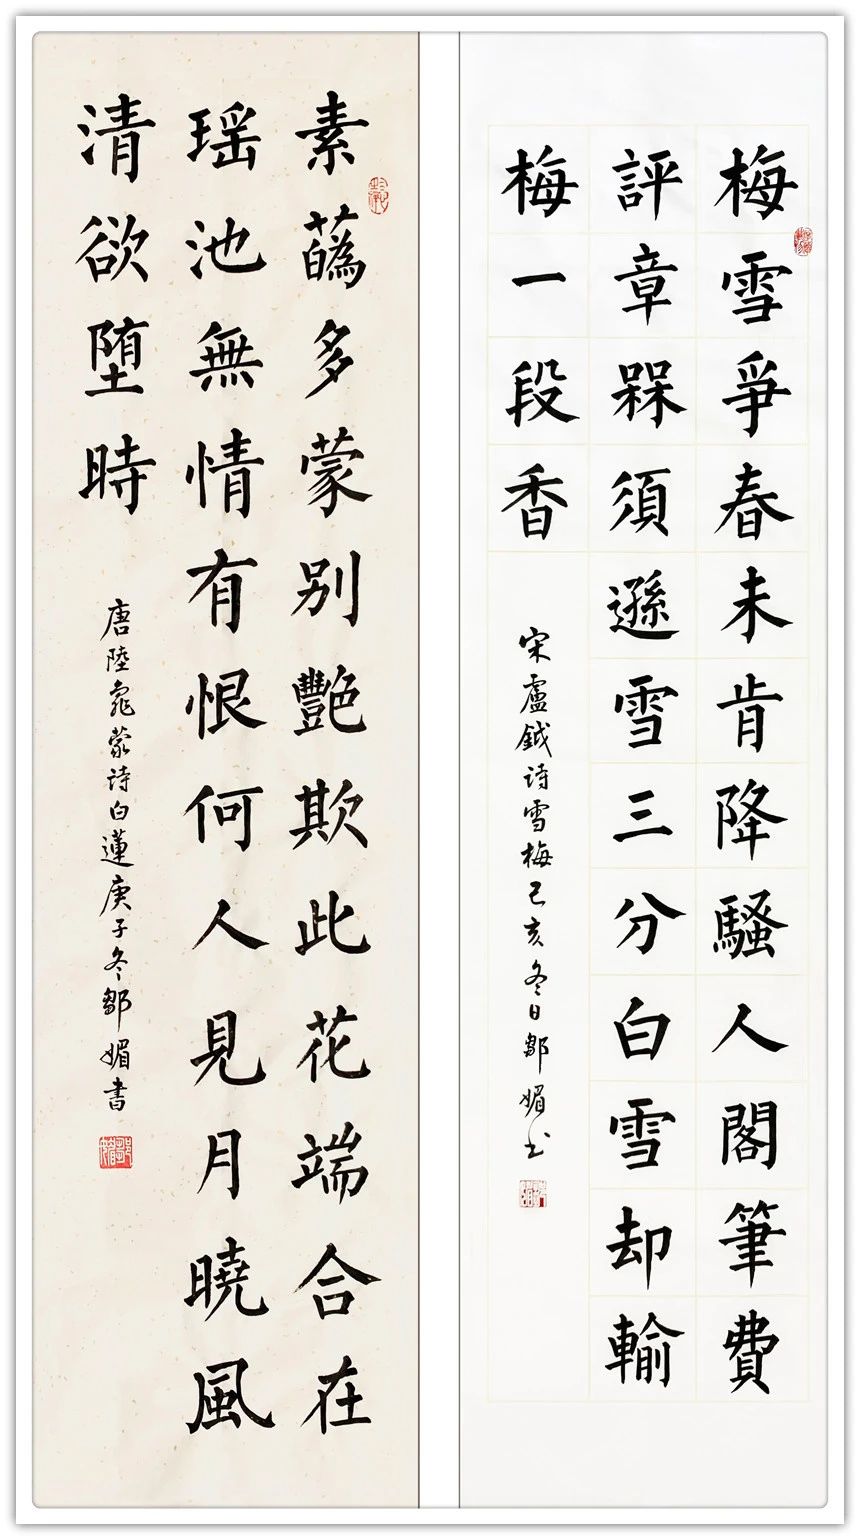 梅雪爭春未肯降騷人閣筆費
評章槑須遜雪三分白雪却輸
梅一段香
宋盧鉞诗雪梅己亥冬日鄒媚书
素蘤多蒙别艷欺此花端合在
瑶池無情有恨何人見月曉風
清欲堕時
唐陸龜蒙诗白蓮庚子冬鄒媚書